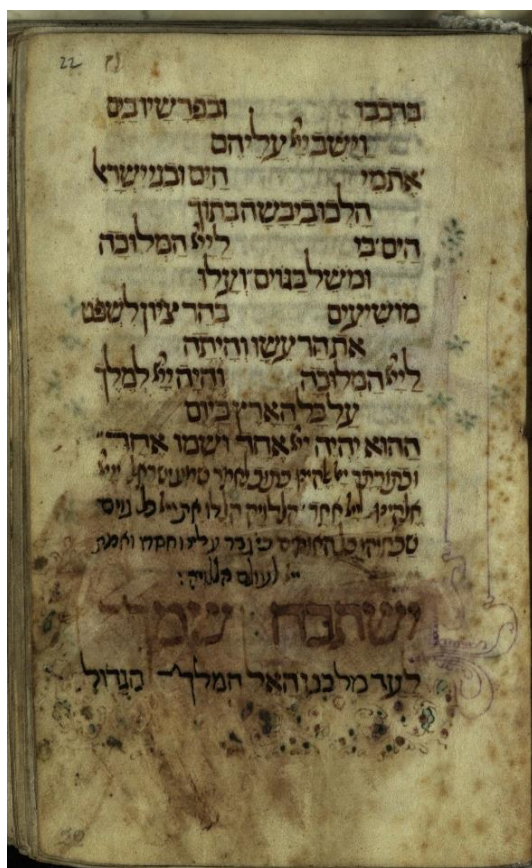 22
ברכבו ובפרשיו בים
וישב ייי עליהם
את מי הים ובני ישראל
הלכו ביבשה בתוך
הים כי לייי המלוכה
ומשל בגוים ועלו
מושיעים בהר ציון לשפט
את הר עשו והיתה
לייי המלוכה והיה ייי למלך
על כל הארץ ביום
ההוא יהיה ייי אחד ושמו אחד
ובתורתך ייי אלהינו כתוב לאמר שמע ישראל ייי
אלהינו ייי אחד הללויה הללו את ייי כל גוים
שבחוהו כל האומים כי גבר עלינו חסדו ואמת
ייי לעולם הללויה:
ישתבח שמך
לעד מלכנו האל המלך הגדול